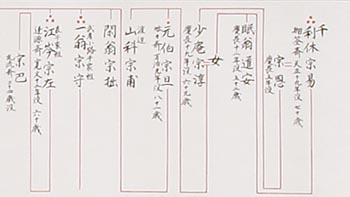 千
利休宗易
抛筌斎 天正十九年没 七十歳
宗恩
慶長五年没
眠翁道安
慶長十二年没 六十二歳
女
少庵宗淳
慶長十九年没 六十九歳
元伯宗旦
咄々斎 万治元年没 八十一歳
渡辺
山科宗甫
閑翁宗拙
武者小路千家祖
一翁宗守
表千家祖
江岑宗左
逢源斎 寛文十二年没 六十歳
宗巴